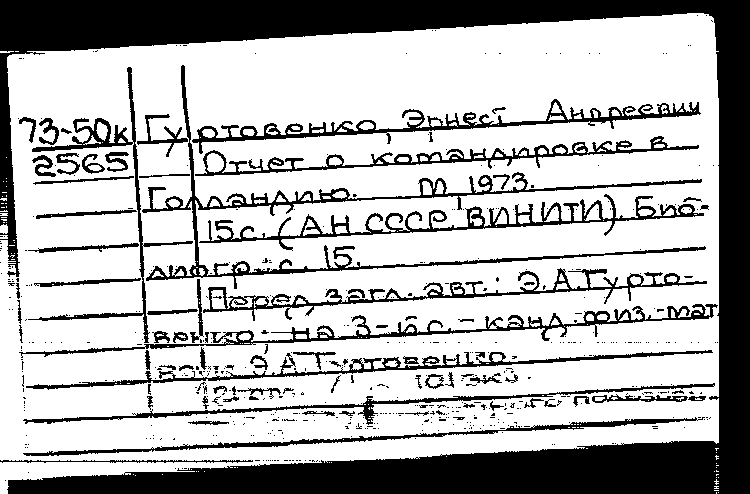 73-50к Гуртовенко, Эрнест Андреевич
2565 Отчет о командировке в
Голландию. М., 1973.
15 с. (АН СССР. ВИНИТИ). Биб-
лиогр.: с. 15.
Перед загл. авт.: Э.А.Гурто-
венко; на 3-й с. - канд. физ.-мат.
наук Э.А.Гуртовенко.
101 экз.